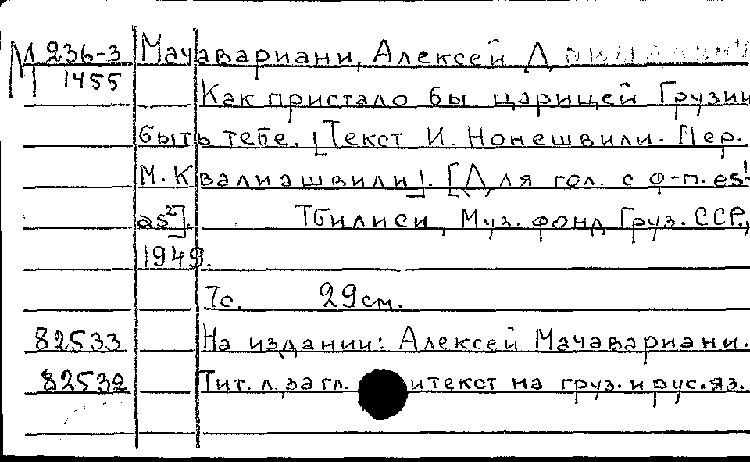 М 236-3 Мачавариани, Алексей Д
1455 Как пристало бы царицей Грузии
быть тебе. [Текст И. Нонешвили. Пер.
М. Квалиашвили]. [Для гол. с ф-п. es¹-
as²]. Тбилиси, Муз. фонд Груз. ССР,
1949.
7с. 29см.
82533 На издании: Алексей Мачавариани.
82532 Тит. л., загл. и текст на груз. и рус. яз.